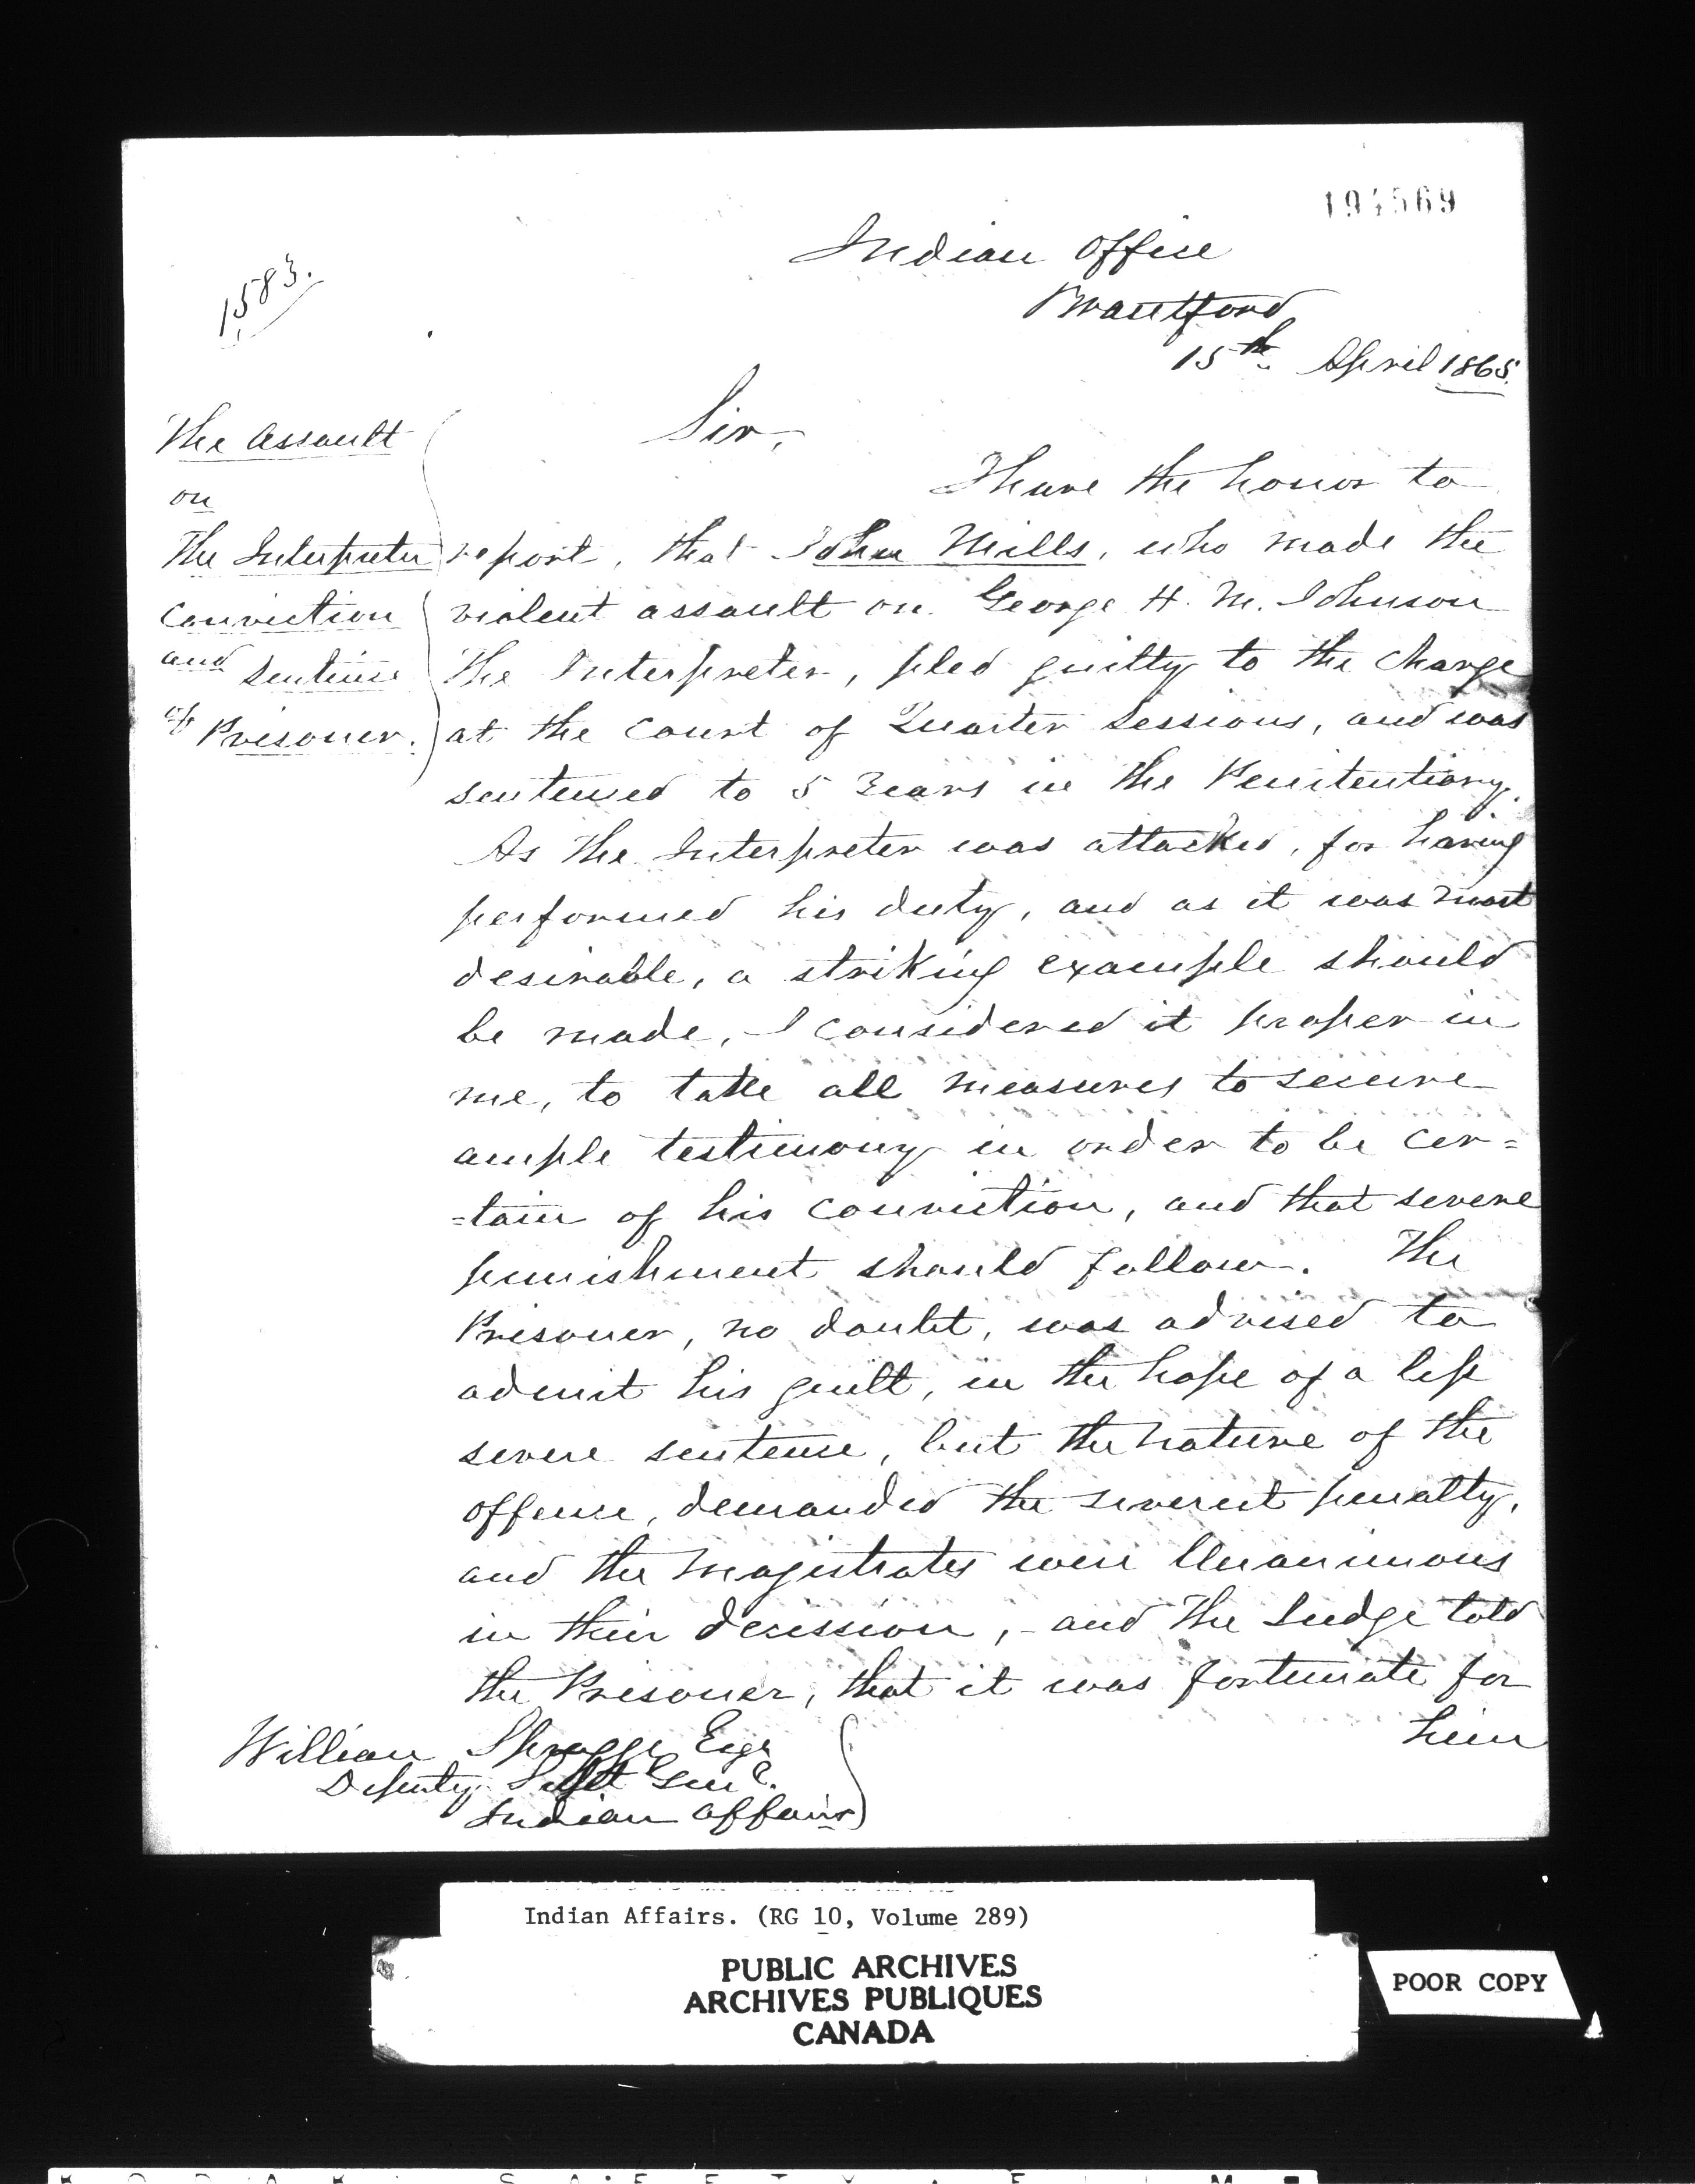 194569
Indian Office
Brantford
15th. April 1865.
1583.
Sir,
The Assault
on
The Interpreter
Conviction
and Sentence
of Prisoner.
I have the honor to
report, that John Mills, who made the
violent assault on George H. M. Johnson
The Interpreter, pled guilty to the charge
at the Court of Quarter Sessions, and was
sentenced to 5 Years in the Penitentiary.
As the Interpreter was attacked, for having
performed his duty, and as it was most
desirable, a striking example should
be made, I considered it proper in
me, to take all measures to secure
ample testimony in order to be cer=
=tain of his conviction, and that severe
punishment should follow. The
Prisoner, no doubt, was advised to
admit his guilt, in the hope of a less
severe sentence, but the nature of the
offense, demanded the severest penalty,
and the Magistrates were Unanimous
in their decission, - and the Judge told
the Prisoner, that it was fortunate for
him
William Spragge Esqr
Deputy Supt Genl.
Indian Affairs
Indian Affairs. (RG 10, Volume 289)
PUBLIC ARCHIVES
ARCHIVES PUBLIQUES
CANADA
POOR COPY